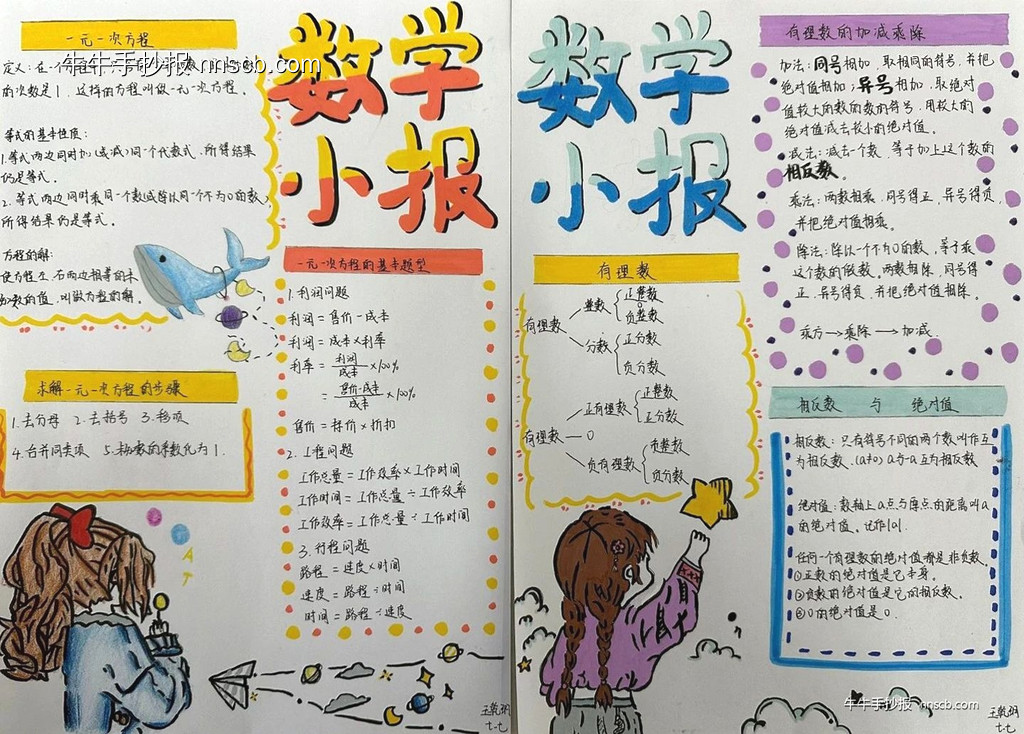 一元一次方程
牛牛手抄报 nnscb.com
定义：在一个
的次数是1，这样的方程叫做一元一次方程。
等式的基本性质：
1.等式两边同时加(或减)同一个代数式，所得结果
仍是等式。
2.等式两边同时乘同一个数(或除以同一个不为0的数)，
所得结果仍是等式。
方程的解：
使方程左、右两边相等的未
知数的值，叫做方程的解。
求解一元一次方程的步骤
1.去分母 2.去括号 3.移项
4.合并同类项 5.未知数的系数化为1.
数学
小报
一元一次方程的基本题型
1.利润问题
利润=售价-成本
利润=成本×利率
利率=利润/成本×100%
=售价-成本/成本×100%
售价=标价×折扣
2.工程问题
工作总量=工作效率×工作时间
工作时间=工作总量÷工作效率
工作效率=工作总量÷工作时间
3.行程问题
路程=速度×时间
速度=路程÷时间
时间=路程÷速度
A
T
七.七
数学
小报
有理数
有理数
整数
正整数
0
负整数
分数
正分数
负分数
有理数
正有理数
正整数
正分数
0
负有理数
负整数
负分数
有理数的加减乘除
加法：同号相加，取相同的符号，并把
绝对值相加；异号相加，取绝对
值较大的数的数的符号，用较大的
绝对值减去较小的绝对值。
减法：减去一个数，等于加上这个数的
相反数。
乘法：两数相乘，同号得正，异号得负，
并把绝对值相乘。
除法：除以一个不为0的数，等于乘
这个数的倒数。两数相除，同号得
正，异号得负，并把绝对值相除。
乘方→乘除→加减
相反数 与 绝对值
相反数：只有符号不同的两个数叫作互
为相反数.(a≠0) a与-a互为相反数
绝对值：数轴上a点与原点的距离叫a
的绝对值。记作|a|.
任何一个有理数的绝对值都是非负数。
①正数的绝对值是它本身。
②负数的绝对值是它的相反数。
③0的绝对值是0.
牛牛手抄报 nnscb.com
七.七